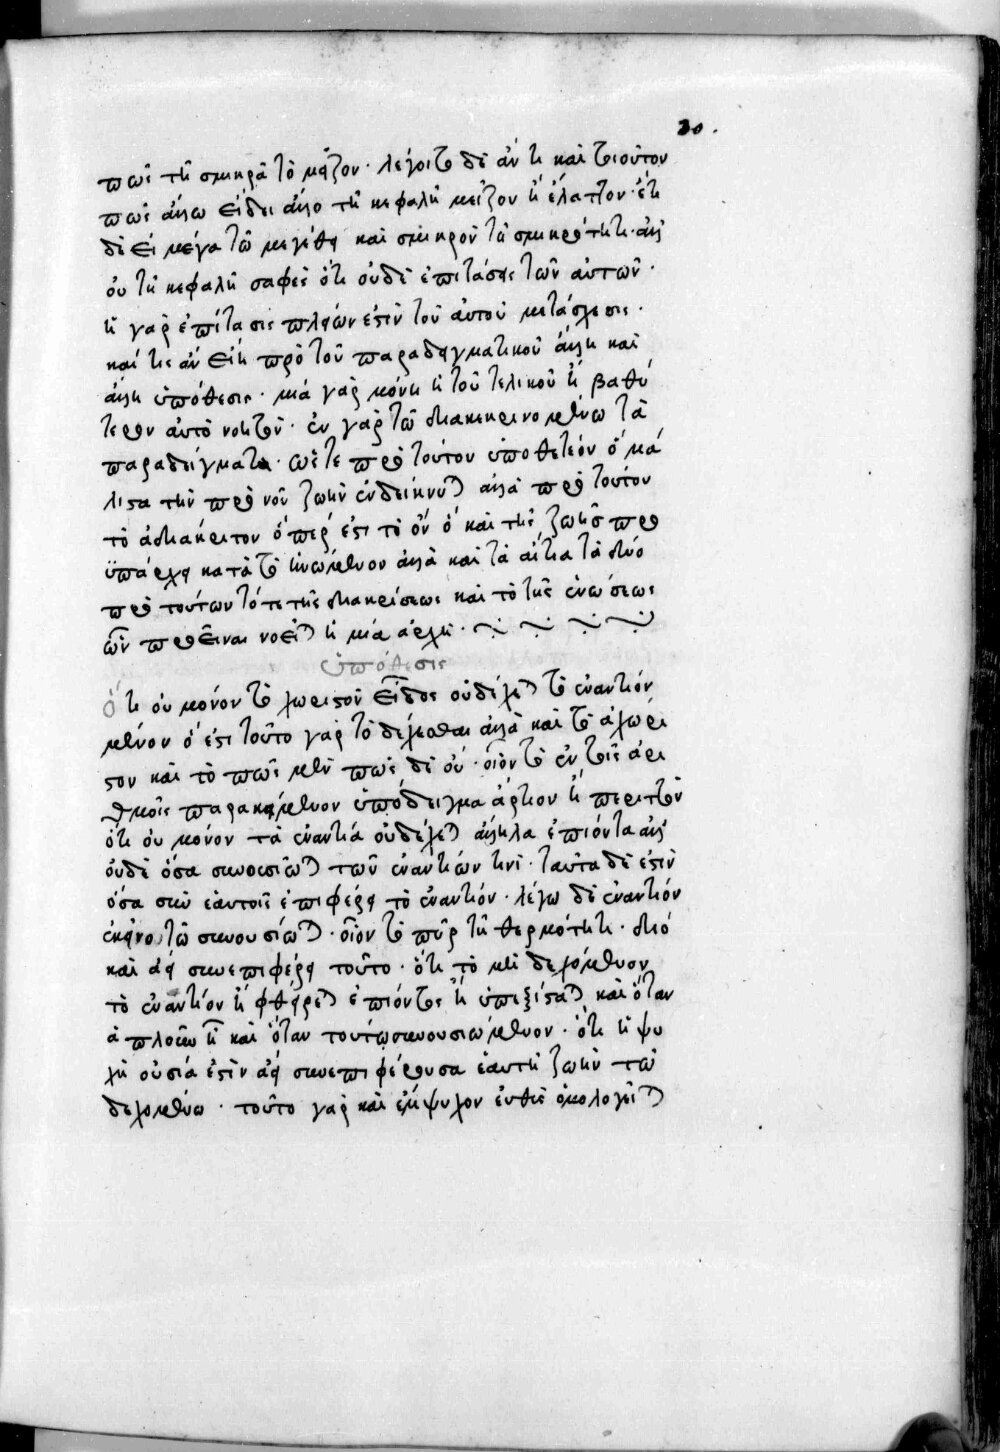 30.
πῶς τῇ σμικρᾷ τὸ μεῖζον· λέγοιτο δὲ ἄν τι καὶ τοιοῦτον
πῶς ἄλλῳ εἴδει ἄλλο τῇ κεφαλῇ μεῖζον ἢ ἔλαττον· ἔτι
δὲ εἰ μέγα τῷ μεγέθει καὶ σμικρὸν τῇ σμικρότητι· ἀλλ
οὐ τῇ κεφαλῇ σαφὲς ὅτι οὐδὲ ἐπιτάσεις τῶν αὐτῶν·
ἡ γὰρ ἐπίτασις πλειόν ἐστιν τοῦ αὐτοῦ μετάσχεσις·
καί τις ἂν εἴη πρὸ τοῦ παραδειγματικοῦ ἄλλη καὶ
ἄλλη ὑπόθεσις· μιὰ γὰρ μόνη ἡ τοῦ τελικοῦ ἢ βαθύ
τερον αὐτὸ νοητόν· ἐν γὰρ τῷ διακεκρινομένῳ τὰ
παραδείγματα· ὥστε πρὸ τούτου ὑποθετέον ὃ μά
λιστα τὴν πρὸ νοῦ ζωὴν ἐνδείκνυται ἀλλὰ πρὸ τούτου
τὸ ἀδιάκριτον ὅπερ ἐστὶ τὸ ὄν ὃ καὶ τῆς ζωῆς προ
ϋπάρχει κατὰ τὸ ἡνωμένον ἀλλὰ καὶ τὰ αἴτια τὰ δύο
πρὸ τούτων τό τε τῆς διακρίσεως καὶ τὸ τῆς ἑνώσεως
ὧν προεῖναι νοεῖται ἡ μία ἀρχή·
ὑπόθεσις
Ὅτι οὐ μόνον τὸ χωριστὸν εἶδος οὐ δέχεται τὸ ἐναντίον
μένον ὅ ἐστι τοῦτο γὰρ τὸ δέχεσθαι ἀλλὰ καὶ τὸ ἀχώρι
στον καὶ τὸ πῶς μὲν πῶς δὲ οὐ· οἷον τὸ ἐν τοῖς ἀρι
θμοῖς παρακείμενον ὑπόδειγμα ἄρτιον ἢ περιττόν
ὅτι οὐ μόνον τὰ ἐναντία οὐ δέχεται ἄλληλα ἐπιόντα ἀλλ
οὐδὲ ὅσα συνουσιῶται τῶν ἐναντίων τινί· ταῦτα δέ ἐστιν
ὅσα σὺν ἑαυτοῖς ἐπιφέρει τὸ ἐναντίον· λέγω δὲ ἐναντίον
ἐκεῖνο τῷ συνουσίωται· οἷον τὸ πῦρ τῇ θερμότητι· διό
καὶ ἀεὶ συνεπιφέρει τοῦτο· ὅτι τὸ μὴ δεχόμενον
τὸ ἐναντίον ἢ φθείρεται ἐπιόντος ἢ ὑπεξίσταται καὶ ὅταν
ἁπλοῦν ᾖ καὶ ὅταν τούτῳ συνουσιωμένον· ὅτι ἡ ψυ
χὴ οὐσία ἐστὶν ἀεὶ συνεπιφέρουσα ἑαυτῇ ζωὴν τῷ
δεχομένῳ· τοῦτο γὰρ καὶ ἔμψυχον εὐθὺς ὁμολογεῖται